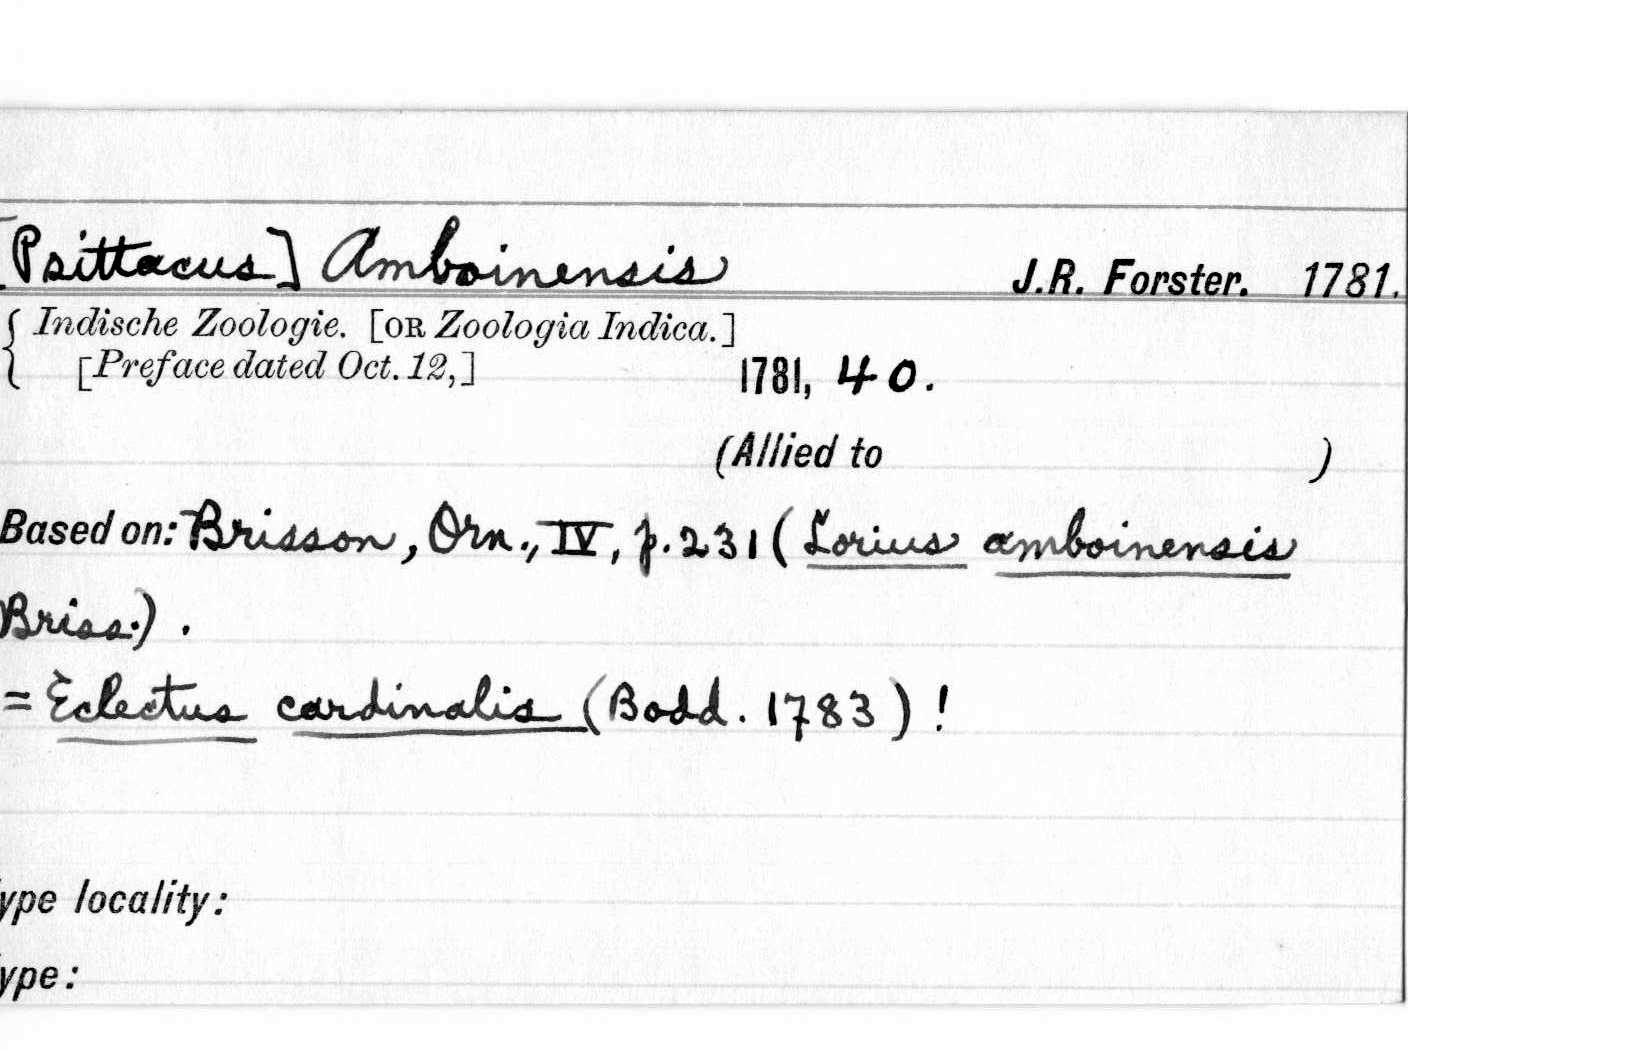 [Psittacus] Amboinensis J.R. Forster. 1781.
{ Indische Zoologie. [OR Zoologia Indica.]
[Preface dated Oct. 12,] 1781, 40.
(Allied to )
Based on: Brisson, Orn., IV, p. 231 (Lorius amboinensis
Briss.).
= Eclectus cardinalis (Bodd. 1783)!
ype locality:
ype: